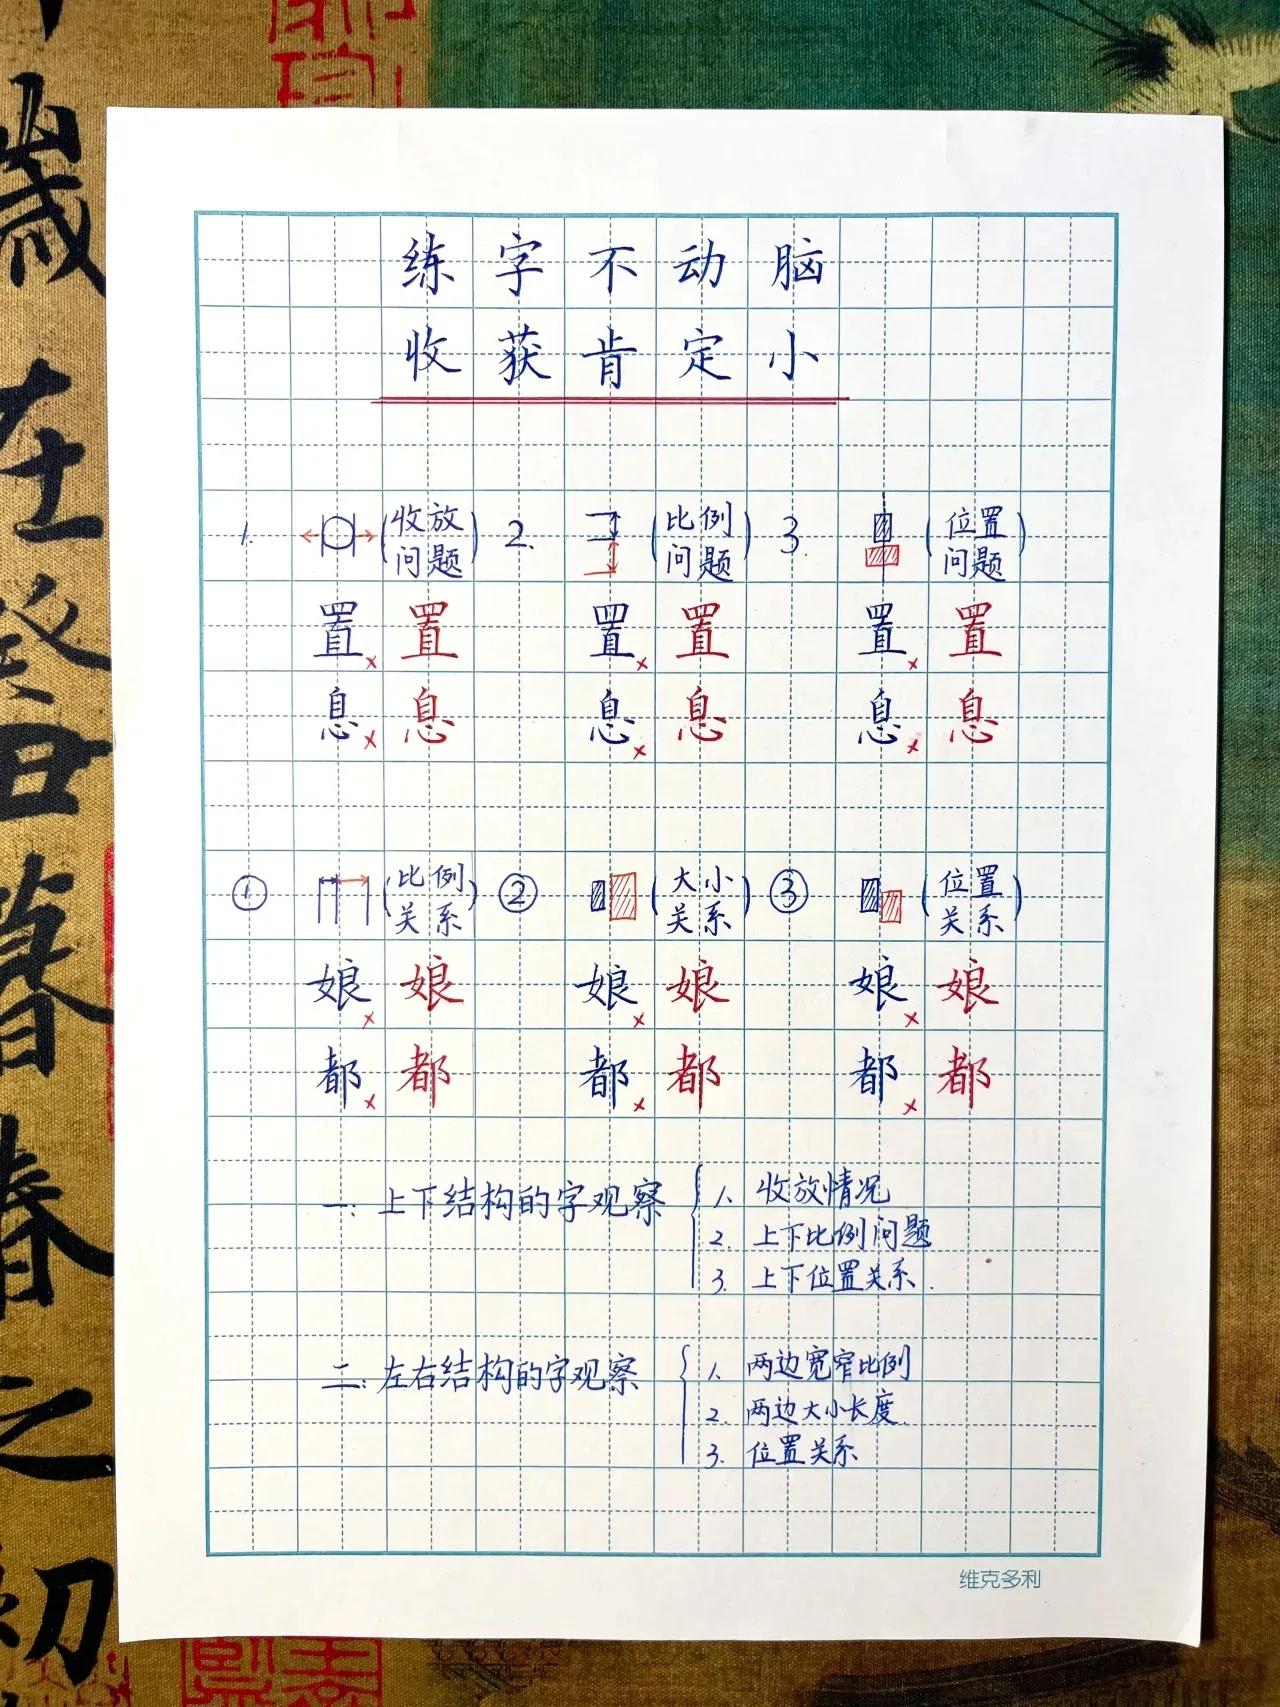 练字不动脑
收获肯定小
1. (收放问题) 2. (比例问题) 3. (位置问题)
置× 置 置× 置 置× 置
息× 息 息× 息 息× 息
① (比例关系) ② (大小关系) ③ (位置关系)
娘× 娘 娘× 娘 娘× 娘
都× 都 都× 都 都× 都
一:上下结构的字观察
1. 收放情况
2. 上下比例问题
3. 上下位置关系.
二:左右结构的字观察
1. 两边宽窄比例
2. 两边大小长度.
3. 位置关系
维克多利
歲
在癸丑暮春之初